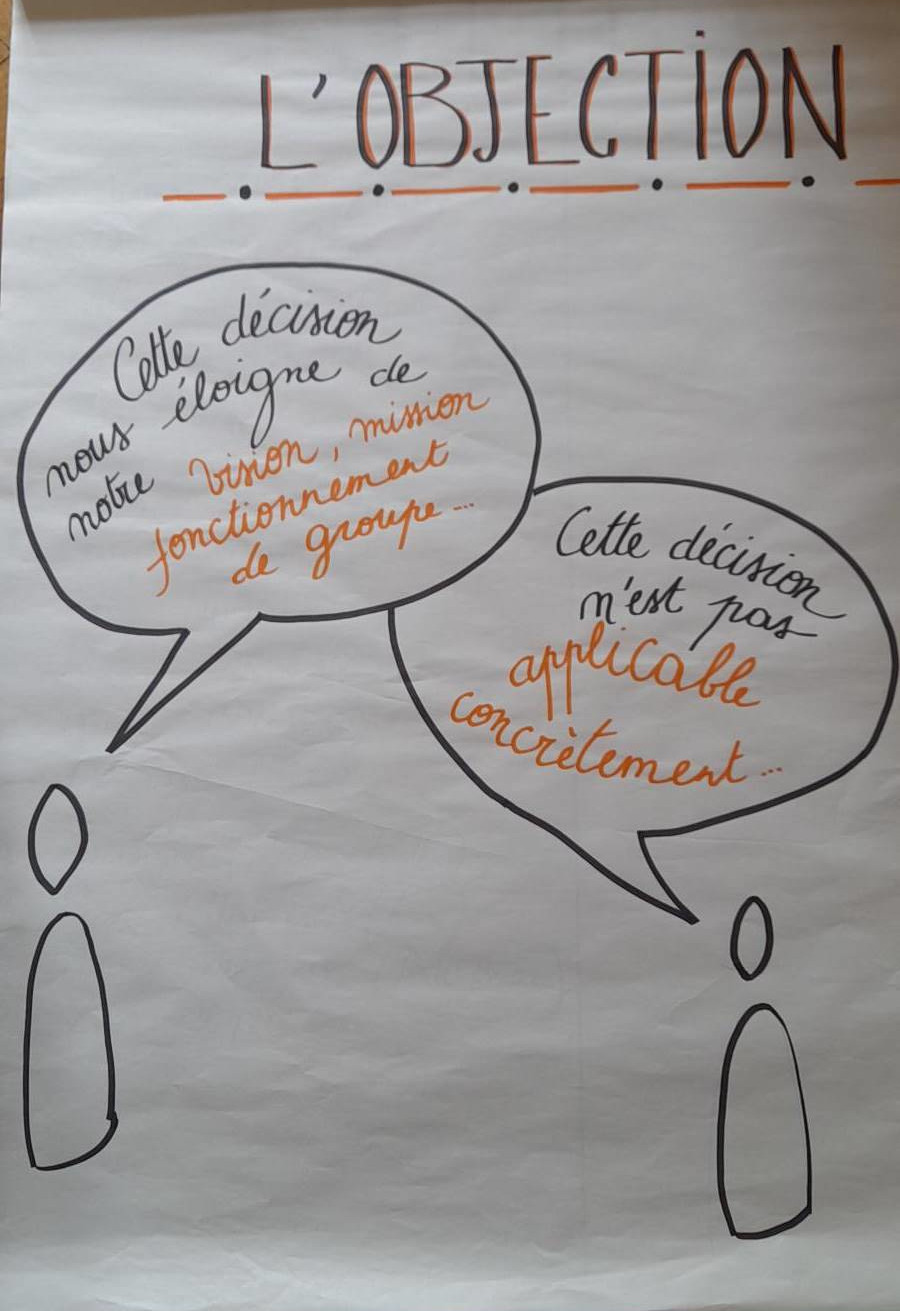 L'OBJECTION
Cette décision
nous éloigne de
notre vision, mission
fonctionnement
de groupe...
Cette décision
n'est pas
applicable
concrètement...